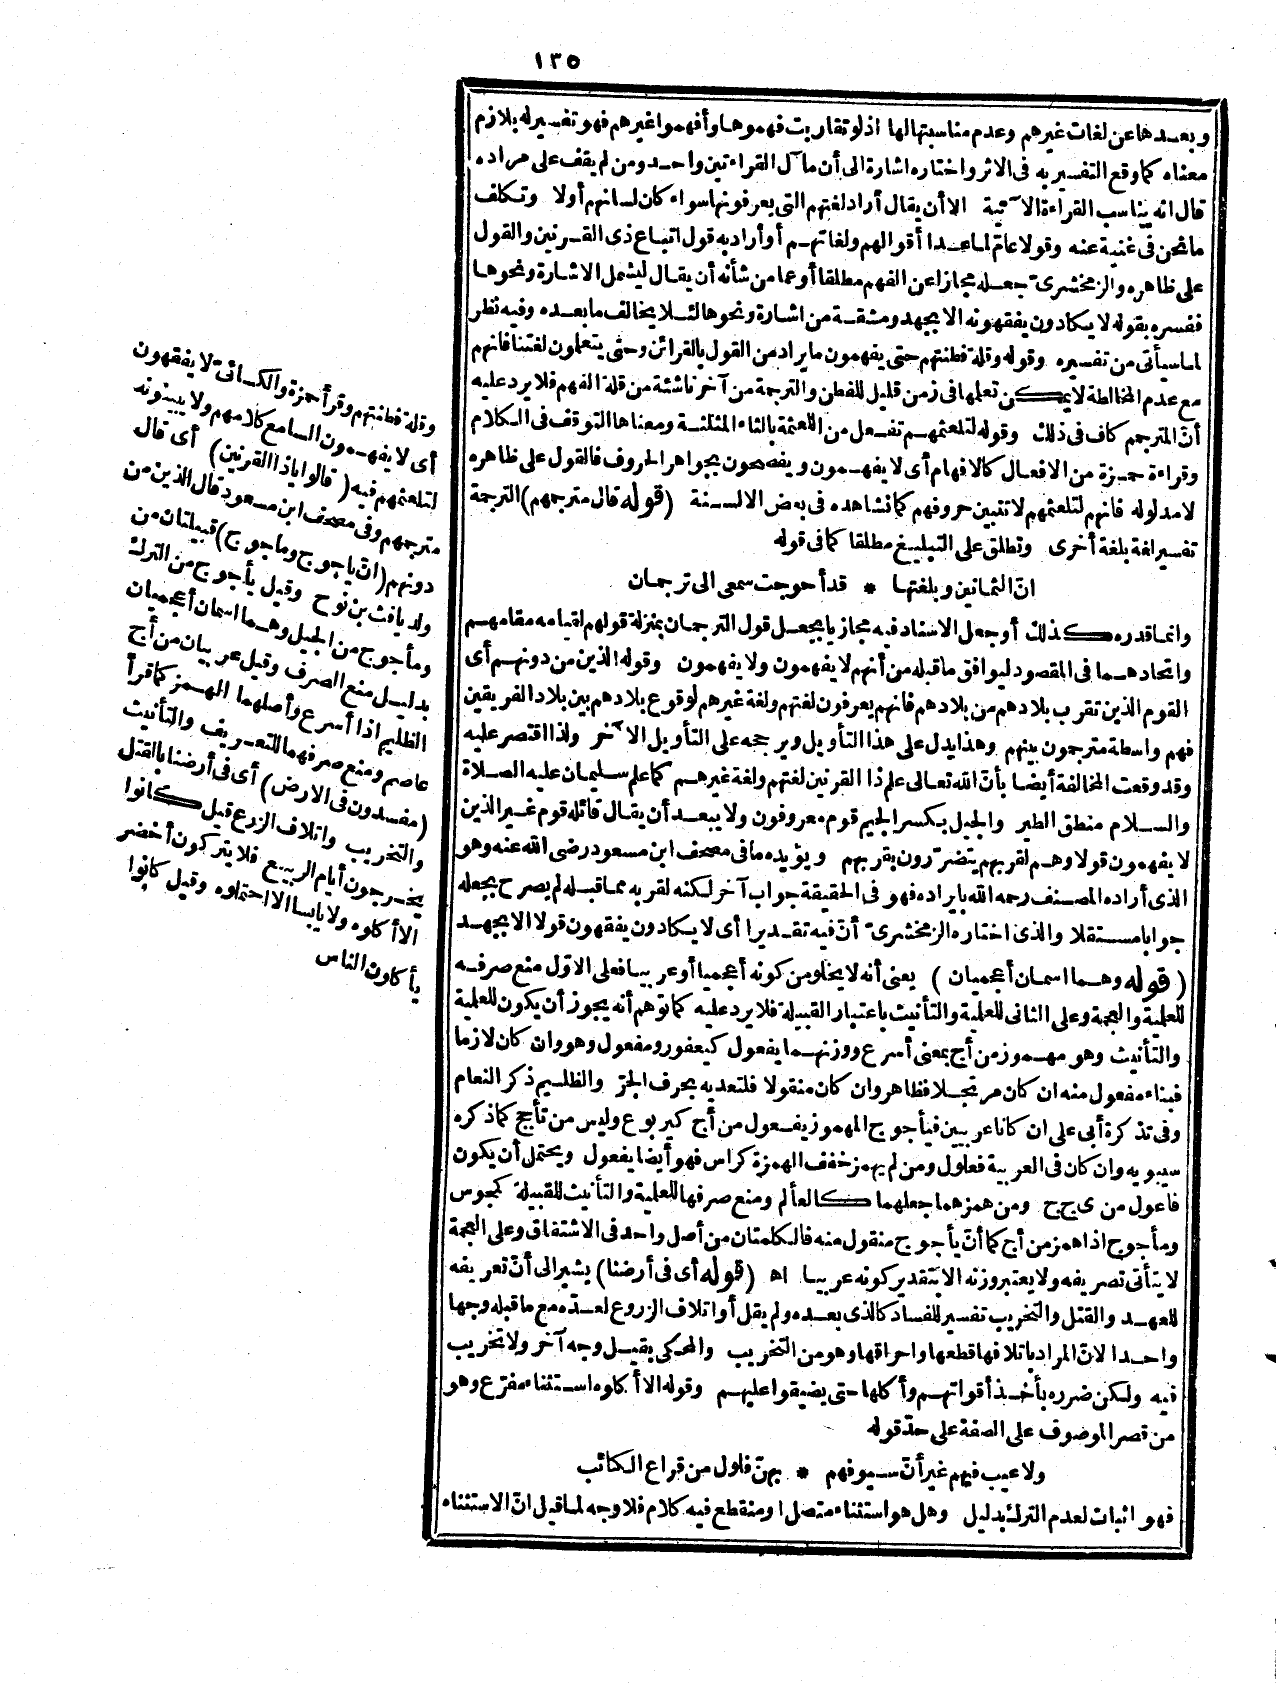 ١٣٥
وبعدها عن لغات غيرهم وعدم مناسبتها لها اذ لو تقاربت فهموها وأفهموا غيرهم فهو تفسير له بلازم
معناه كما وقع التفسير به فى الاثر واختاره اشارة الى أن مآل القراءتين واحد ومن لم يقف على مراده
قال انه يناسب القراءة الآتية الا أن يقال أراد لغتهم التى يعرفونها سواء كان لسانهم أولا وتكلف
ما نحن فى غنية عنه وقولا عام لما عدا أقوالهم ولغاتهم أو أراد به قول اتباع ذى القرنين والقول
على ظاهره والزمخشرى جعله مجازا عن الفهم مطلقا أو عما من شأنه أن يقال ليشمل الاشارة ونحوها
ففسره بقوله لا يكادون يفقهونه الا بجهد ومشقة من اشارة ونحوها لئلا يخالف ما بعده وفيه نظر
لما سيأتى من تفسيره وقوله وقلة فطنتهم حتى يفهمون ما يراد من القول بالقرائن وحتى يتعلمون لغتنا فانهم
مع عدم المخالطة لا يمكن تعلمها فى زمن قليل للفطن والترجمة من آخر ناشئة من قلة الفهم فلا يرد عليه
أنّ المترجم كاف فى ذلك وقوله لتلعثمهم تفعل من اللعثمة بالثاء المثلثة ومعناها التوقف فى الكلام
وقراءة حمزة من الافعال كالافهام أى لا يفهمون ويفصحون بجواهر الحروف فالقول على ظاهره
لا مدلوله فانهم لتلعثمهم لا تتبين حروفهم كما نشاهده فى بعض الالسنة (قوله قال مترجمهم) الترجمة
تفسير لغة بلغة أخرى وتطلق على التبليغ مطلقا كما فى قوله
انّ الثمانين وبلغتها * قد أحوجت سمعى الى ترجمان
وانما قدره كذلك أو جعل الاسناد فيه مجازيا بجعل قول الترجمان بمنزلة قولهم لقيامه مقامهم
واتحادهما فى المقصود ليوافق ما قبله من أنهم لا يفهمون ولا يفهمون وقوله الذين من دونهم أى
القوم الذين تقرب بلادهم من بلادهم فانهم يعرفون لغتهم ولغة غيرهم لوقوع بلادهم بين بلاد الفريقين
فهم واسطة مترجمون بينهم وهذا يدل على هذا التأويل ويرجحه على التأويل الآخر ولذا اقتصر عليه
وقد وقعت المخالفة أيضا بأنّ الله تعالى علم ذا القرنين لغتهم ولغة غيرهم كما علم سليمان عليه الصلاة
والسلام منطق الطير والجيل بكسر الجيم قوم معروفون ولا يبعد أن يقال قائله قوم غير الذين
لا يفهمون قولا وهم لقربهم يتضرّرون بقربهم ويؤيده ما فى مصحف ابن مسعود رضى الله عنه وهو
الذى أراده المصنف رحمه الله بايراده فهو فى الحقيقة جواب آخر لكنه لقربه مما قبله لم يصرح بجعله
جوابا مستقلا والذى اختاره الزمخشرى أنّ فيه تقديرا أى لا يكادون يفقهون قولا الا بجهد
(قوله وهما اسمان أعجميان) يعنى أنه لا يخلو من كونه أعجميا أو عربيا فعلى الاوّل منع صرفه
للعلمية والعجمة وعلى الثانى للعلمية والتأنيث باعتبار القبيلة فلا يرد عليه كما توهم أنه يجوز أن يكون للعلمية
والتأنيث وهو مهموز من أج بمعنى أسرع ووزنهما يفعول كيعفور ومفعول وهو وان كان لازما
فبناء مفعول منه ان كان مرتجلا فظاهر وان كان منقولا فلتعديه بحرف الجرّ والظليم ذكر النعام
وفى تذكرة أبى على ان كانا عربيين فيأجوج المهموز يفعول من أج كيربوع وليس من تأجج كما ذكره
سيبويه وان كان فى العربية فعلول ومن لم يهمز خفف الهمزة كراس فهو أيضا يفعول ويحتمل أن يكون
فاعول من ى ج ج ومن همزهما جعلهما كالعألم ومنع صرفها للعلمية والتأنيث للقبيلة كمجوس
ومأجوج اذا همز من أج كما أنّ يأجوج منقول منه فالكلمتان من أصل واحد فى الاشتقاق وعلى العجمة
لا يتأتى تصريفه ولا يعتبر وزنه الا بتقدير كونه عربيا اه (قوله أى فى أرضنا) يشير الى أنّ تعريفه
للعهد والقتل والتخريب تفسير للفساد كالذى بعده ولم يقل أو اتلاف الزروع لعدّه مع ما قبله وجها
واحدا لانّ المراد باتلافها قطعها واحراقها وهو من التخريب والمحكى بقيل وجه آخر ولا تخريب
فيه ولكن ضرره بأخذ أقواتهم وأكلها حتى يضيقوا عليهم وقوله الا أكلوه استثناء مفرّغ وهو
من قصر الموصوف على الصفة على حدّ قوله
ولا عيب فيهم غير أنّ سيوفهم * بهنّ فلول من قراع الكتائب
فهو اثبات لعدم الترك بدليل وهل هو استثناء متصل او منقطع فيه كلام فلا وجه لما قيل انّ الاستثناء
وقلة فطنتهم وقرأ حمزة والكسائى لا يفقهون
أى لا يفهمون السامع كلامهم ولا يبينونه
لتلعثمهم فيه (قالوا ياذا القرنين) أى قال
مترجمهم وفى مصحف ابن مسعود قال الذين من
دونهم (انّ يأجوج ومأجوج) قبيلتان من
ولد يافث بن نوح وقيل يأجوج من الترك
ومأجوج من الجيل وهما اسمان أعجميان
بدليل منع الصرف وقيل عربيان من أج
الظليم اذا أسرع وأصلهما الهمز كما قرأ
عاصم ومنع صرفهما للتعريف والتأنيث
(مفسدون فى الارض) أى فى أرضنا بالقتل
والتخريب واتلاف الزرع قيل كانوا
يخرجون أيام الربيع فلا يتركون أخضر
الا أكلوه ولا يابسا الا احتملوه وقيل كانوا
يأكلون الناس